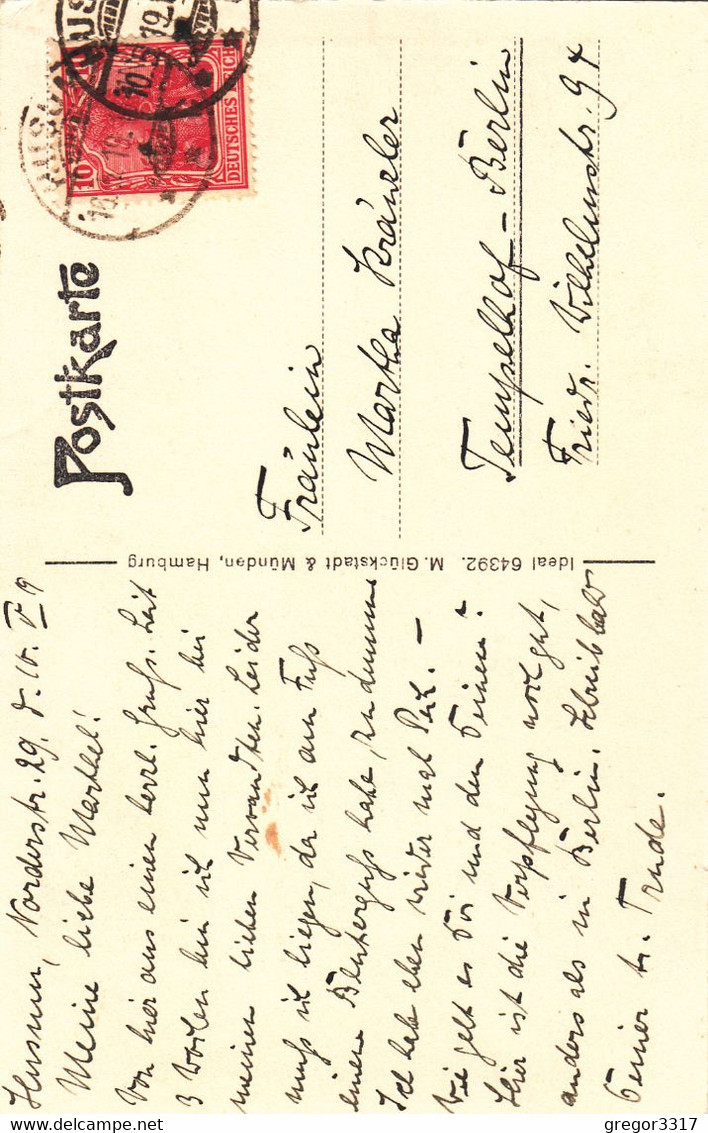 Postkarte
10
DEUTSCHES REICH
HUSUM
Fräulein
Martha Kränzler
Tempelhof-Berlin
Friedr. Wilhelmstr. 94
Ideal 64392. M. Glückstadt & Münden, Hamburg
Husum, Norderstr. 29. d. 10. VI 19
Meine liebe Marthel!
Von hier aus einen herzl. Gruß. Seit
3 Wochen bin ich nun hier bei
meinen lieben Verwandten. Leider
muß ich liegen, da ich am Fuß
einen Bluterguß habe, zu dumm
Ich hab eben wieder mal Pech. –
Wie geht es Dir und den Deinen?
Hier ist die Verpflegung wohl gut,
anders als in Berlin. Schreib bald
Deiner tr. Trude.
gregor3317